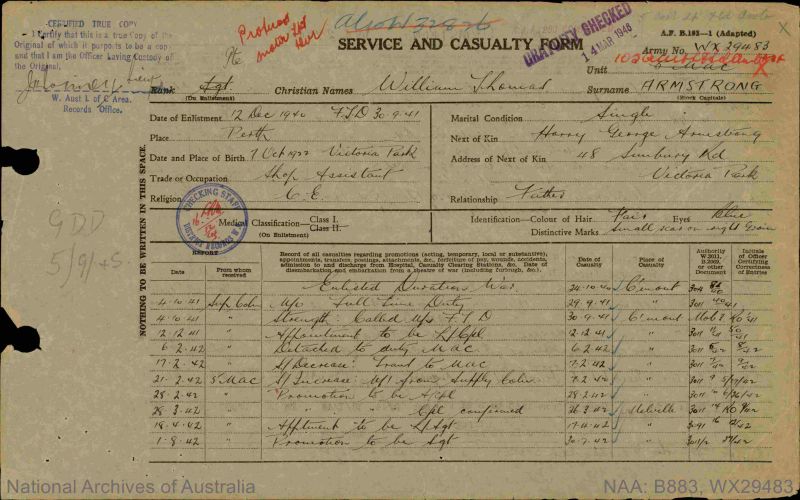 CERTIFIED TRUE COPY
I Certify that this is a true Copy of the
Original of which it purports to be a copy
and that I am the Officer Having Custody of
the Original.
Lieut
W. Aust L of C Area.
Records Office.
Also W32826
GRATUITY CHECKED
14 MAR 1946
SERVICE AND CASUALTY FORM
A.F. B.103—1 (Adapted)
Army No. WX 29483
Unit MAC
Pte
Rank Sgt. Christian Names William Thomas Surname ARMSTRONG
(On Enlistment) (Block Capitals)
Date of Enlistment 12 Dec 1940 F.T.D 30·9·41
Place Perth
Date and Place of Birth 7 Oct 1922 Victoria Park
Trade or Occupation Shop Assistant
Religion C.E.
Marital Condition Single
Next of Kin Harry George Armstrong
Address of Next of Kin 48 Sunbury Rd
Victoria Park
Relationship Father
CHECKING STAFF
Medical Classification—Class I.
(On Enlistment) Class II.
Identification—Colour of Hair Fair Eyes Blue
Distinctive Marks Small scar on right
NOTHING TO BE WRITTEN IN THIS SPACE.
GDD
5/9/45
REPORT
Date From whom received
Record of all casualties regarding promotions (acting, temporary, local or substantive); appointments, transfers, postings, attachments, &c., forfeiture of pay, wounds, accidents, admission to and discharge from Hospital, Casualty Clearing Stations, &c. Date of disembarkation and embarkation from a theatre of war (including furlough, &c.).
Date of Casualty
Place of Casualty
Authority W.3011, B.2069, or other Document
Initials of Officer Certifying Correctness of Entries
Enlisted Duration War 24·10·40 C'mont 3011
4·10·41 Sup Coln M/o Full Time Duty 29·9·41 " 3011
4·10·41 " Strength: Called Up F.T.D 30·9·41 C'mont Mob 2
12·12·41 " Appointment to be L/Cpl 12·12·41 " 3011
6·2·42 " Detached to duty MAC 6·2·42 " 3011
17·2·42 " S/Decrease: Transf to MAC 7·2·42 " 3011
21·2·42 5 MAC S/Increase: M/I from Supply Coln 7·2·42 " 3011
28·2·42 " Promotion to be A/Cpl 28·2·42 " 3011
28·3·42 " " " Cpl confirmed 26·3·42 Melville 3011
18·4·42 " Appt'ment to be L/Sgt 17·4·42 "
1·8·42 " Promotion to be Sgt 30·7·42 " 3011/2
National Archives of Australia
NAA: B883, WX29483